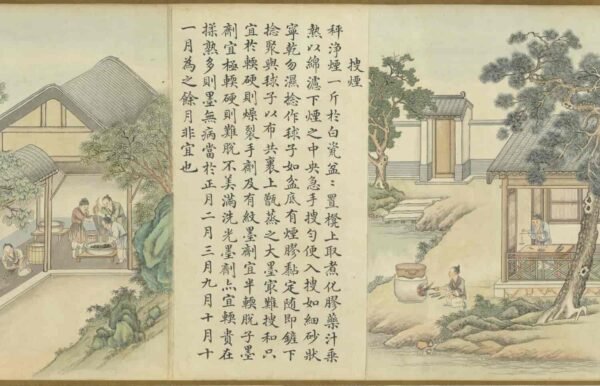 搜煙
秤淨煙一斤於白瓷盆〻置櫈上取煮化膠藥汁乗
熱以綿濾下煙之中央急手搜勻便入搜如細砂狀
寧乾勿濕捻作毬子如盆底有煙膠黏定随即鏟下
捻聚與毬子以布共裹上甑蒸之大墨㝡難搜和只
宜於輭硬則燥裂手劑及有紋墨劑宜半輭脫子墨
劑宜極輭硬則難脫不美滿洗光墨劑亦宜輭貴在
揉熟多則墨無病當於正月二月三月九月十月十
一月為之餘月非宜也